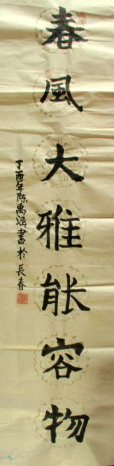 春風大雅能容物
丁酉年陈禹涵書於長春